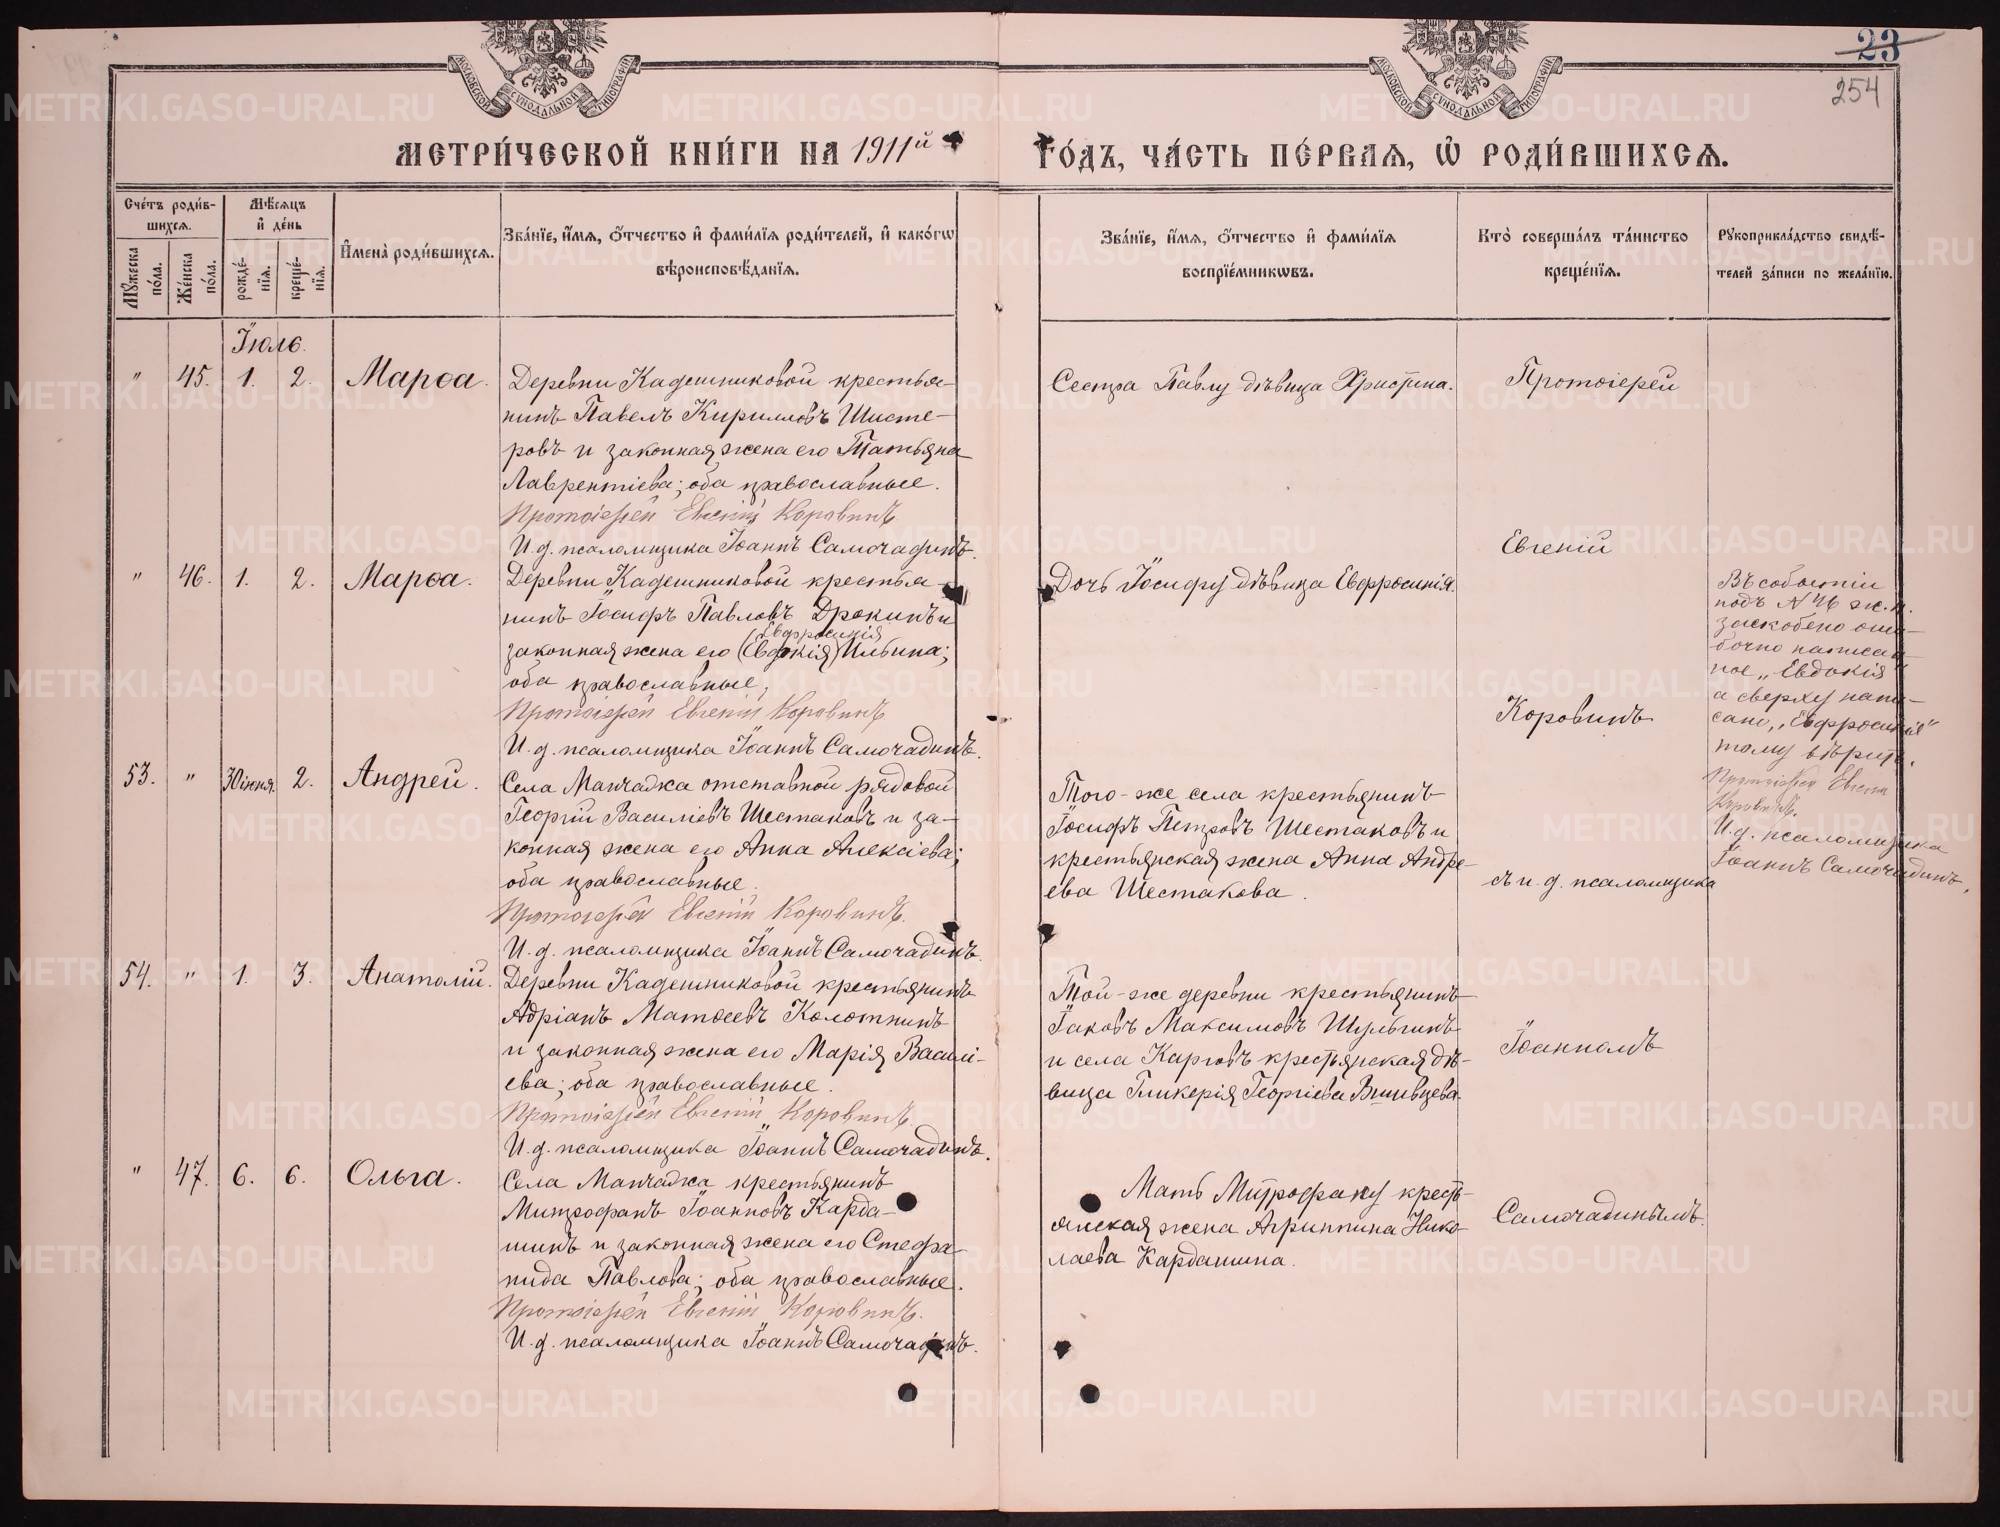 МОСКОВСКОЙ СУНОДАЛЬНОЙ ТИПОГРАФИИ
МОСКОВСКОЙ СУНОДАЛЬНОЙ ТИПОГРАФИИ
23
254
МЕТРИ́ЧЕСКОЙ КНИ́ГИ НА 1911й
ГО́ДЪ, ЧА́СТЬ ПЕ́РВАЯ, Ѡ РОДИ́ВШИХСЯ.
Сче́тъ роди́в-
шихся.
Мꙋжеска по́ла.
Же́нска по́ла.
Мѣ́сяцъ
и҆ де́нь
рожде́-нїя.
креще́-нїя.
И҆мена̀ роди́вшихся.
Зва́нїе, и҆́мя, ѻ҆́тчество и҆ фами́лїя роди́телей, и҆ како́гѡ
вѣроисповѣ́данїя.
Зва́нїе, и҆́мя, ѻ҆́тчество и҆ фами́лїя
воспрїе́мникѡвъ.
Кто̀ соверша́лъ та́инство
креще́нїя.
Рꙋкоприкла́дство свидѣ́-
телей за́писи по жела́нїю.
Іюль.
" 45. 1. 2. Марѳа.
Деревни Кадешниковой крестья-
нинъ Павелъ Кирилловъ Шисте-
ровъ и законная жена его Татьяна
Лаврентіева; оба православные.
Протоіерей Евгеній Коровинъ
И. д. псаломщика Іоаннъ Самочадинъ.
Сестра Павлу дѣвица Христина.
Протоіерей
" 46. 1. 2. Марѳа.
Деревни Кадешниковой крестья-
нинъ Іосифъ Павловъ Дрокинъ и
Евфросинія
законная жена его (Евдокія) Ильина;
оба православные,
Протоіерей Евгеній Коровинъ
И. д. псаломщика Іоаннъ Самочадинъ.
Дочь Іосифу дѣвица Евфросинія.
Евгеній
Коровинъ
Въ событіи
подъ № 46 ж. п.
заскоблено оши-
бочно написан-
ное „Евдокія"
а сверху напи-
сано „Евфросинія"
тому вѣрить.
Протоіерей Евгеній
Коровинъ.
И. д. псаломщика
Іоаннъ Самочадинъ.
53. " 30 іюня. 2. Андрей.
Села Манчажа отставной рядовой
Георгій Василіевъ Шестаковъ и за-
конная жена его Анна Алексіева;
оба православные.
Протоіерей Евгеній Коровинъ.
И. д. псаломщика Іоаннъ Самочадинъ.
Того-же села крестьянинъ
Іосифъ Петровъ Шестаковъ и
крестьянская жена Анна Андре-
ева Шестакова.
съ и. д. псаломщика
54. " 1. 3. Анатолій.
Деревни Кадешниковой крестьянинъ
Адріанъ Матѳеевъ Колотнинъ
и законная жена его Марія Василі-
ева; оба православные.
Протоіерей Евгеній Коровинъ.
И. д. псаломщика Іоаннъ Самочадинъ.
Той-же деревни крестьянинъ
Іаковъ Максимовъ Шульгинъ
и села Карговъ крестьянская дѣ-
вица Гликерія Георгіева Вшивцева.
Іоанномъ
" 47. 6. 6. Ольга.
Села Манчажа крестьянинъ
Митрофанъ Іоанновъ Карда-
шинъ и законная жена его Стефа-
нида Павлова; оба православные.
Протоіерей Евгеній Коровинъ.
И. д. псаломщика Іоаннъ Самочадинъ.
Мать Митрофану кресть-
янская жена Агриппина Нико-
лаева Кардашина.
Самочадинымъ.